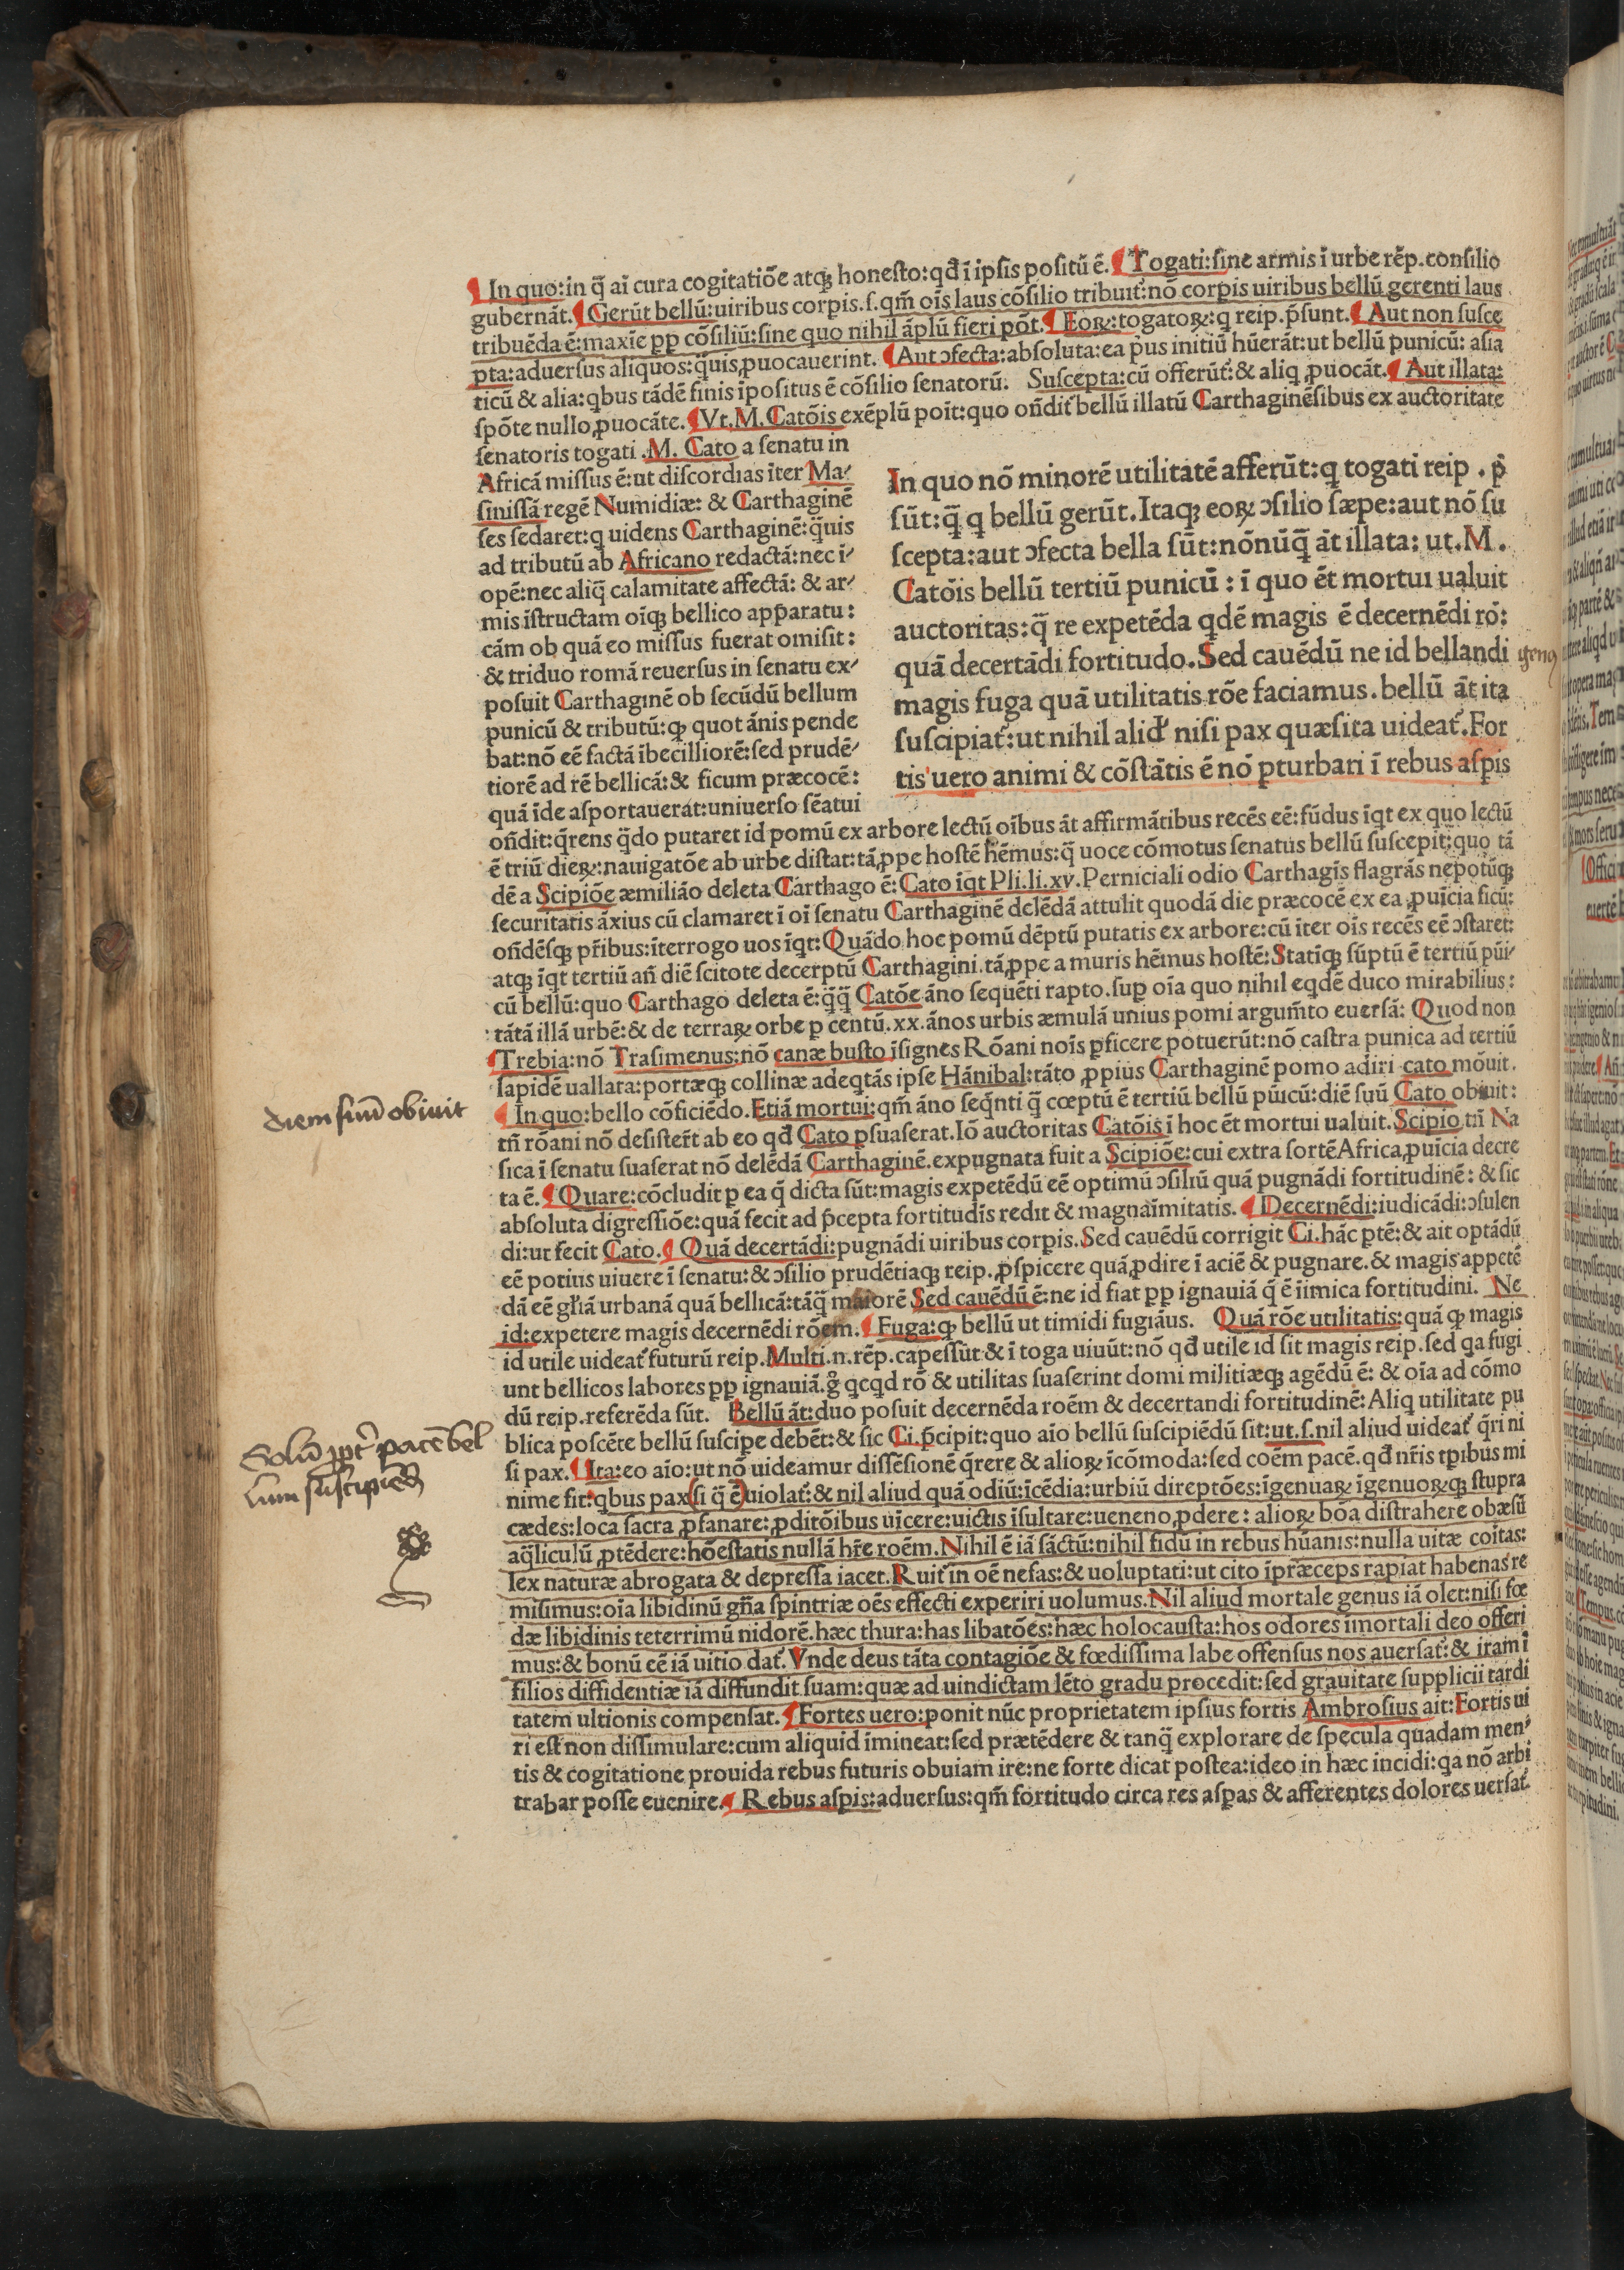 ¶ In quo: in q̄ aī cura cogitatiōe atqꝫ honesto: qđ ī ipsis positū ē. ¶ Togati: sine armis ī urbe rēp. consilio
gubernāt. ¶ Gerūt bellū: uiribus corpis. ſ. qm̄ oīs laus cōſilio tribuit᷑: nō corpis uiribus bellū gerenti laus
tribuēda ē: maxīe ꝑp cōſiliū: ſine quo nihil āplū fieri pōt. ¶ Eoꝝ: togatoꝝ: q reip. p̄ſunt. ¶ Aut non ſuſce
pta: aduerſus aliquos: q̄uis ꝓuocauerint. ¶ Aut ↄfecta: abſoluta: ea p̄us initiū hūerāt: ut bellū punicū: aſia
ticū & alia: qbus tādē finis īpoſitus ē cōſilio ſenatorū. Suſcepta: cū offerūt᷑: & aliq ꝓuocāt. ¶ Aut illata:
ſpōte nullo ꝓuocāte. ¶ Vt. M. Catōis exēplū poīt: quo oñdit᷑ bellū illatū Carthaginēſibus ex auctoritate
ſenatoris togati. M. Cato a ſenatu in
Africā miſſus ē: ut diſcordias īter Ma⸗
ſiniſſā regē Numidiæ: & Carthaginē
ſes ſedaret: q uidens Carthaginē: q̄uis
ad tributū ab Africano redactā: nec ī⸗
opē: nec aliq̄ calamitate affectā: & ar⸗
mis īſtructam oīqꝫ bellico app̄aratu:
cām ob quā eo miſſus fuerat omiſit:
& triduo romā reuerſus in ſenatu ex⸗
poſuit Carthaginē ob ſecūdū bellum
punicū & tributū: ꝙ quot ānis pende
bat: nō eē factā ībecilliorē: ſed prudē⸗
tiorē ad rē bellicā: & ficum præcocē:
quā īde aſportauerat: uniuerſo ſēatui
In quo nō minorē utilitatē afferūt: q togati reip. p̄
ſūt: q̄ q bellū gerūt. Itaqꝫ eoꝝ ↄſilio ſæpe: aut nō ſu
ſcepta: aut ↄfecta bella ſūt: nōnūq̄ āt illata: ut. M.
Catōis bellū tertiū punicū: ī quo ēt mortui ualuit
auctoritas: q̄ re expetēda qdē magis ē decernēdi rō:
quā decertādi fortitudo. Sed cauēdū ne id bellandi
magis fuga quā utilitatis rōe faciamus. bellū āt ita
ſuſcipiat᷑: ut nihil alid᷑ niſi pax quæſita uideat᷑. For
tis uero animi & cōſtātis ē nō ꝑturbari ī rebus aſpis
oñdit: q̄rens q̄do putaret id pomū ex arbore lectū oībus āt affirmātibus recēs eē: fūdus īqt ex quo lectū
ē triū dieꝝ: nauigatōe ab urbe diſtat: tā ꝓpe hoſtē hēmus: q̄ uoce cōmotus ſenatus bellū ſuſcepit: quo tā
dē a Scipiōe æmiliāo deleta Carthago ē: Cato īqt Pli. li. xv. Perniciali odio Carthagīs flagrās nepotūqꝫ
ſecuritatis āxius cū clamaret ī oī ſenatu Carthaginē delēdā attulit quodā die præcocē ex ea ꝓuīcia ficū:
oñdēſqꝫ pr̄ibus: īterrogo uos īqt: Quādo hoc pomū dēptū putatis ex arbore: cū īter oīs recēs eē ↄſtaret:
atqꝫ īqt tertiū an̄ diē ſcitote decerptū Carthagini. tā ꝓpe a muris hēmus hoſtē: Statīqꝫ ſūptū ē tertiū pūi⸗
cū bellū: quo Carthago deleta ē: q̄q̄ Catōe āno ſequēti rapto. ſup oīa quo nihil eqdē duco mirabilius:
tātā illā urbē: & de terraꝝ orbe ꝑ centū. xx. ānos urbis æmulā unius pomi argum̄to euerſā: Quod non
¶ Trebia: nō Traſimenus: nō canæ buſto īſignes Rōani noīs ꝑficere potuerūt: nō caſtra punica ad tertiū
lapidē uallata: portæqꝫ collinæ adeqtās ipſe Hānibal: tāto ꝓpius Carthaginē pomo adiri cato mōuit.
¶ In quo: bello cōficiēdo. Etiā mortui: qm̄ āno ſeq̄nti q̄ cœptū ē tertiū bellū pūicū: diē ſuū Cato obiuit:
tn̄ rōani nō deſiſter̄t ab eo qđ Cato ꝑſuaſerat. Iō auctoritas Catōis ī hoc ēt mortui ualuit. Scipio tn̄ Na
ſica ī ſenatu ſuaſerat nō delēdā Carthaginē. expugnata fuit a Scipiōe: cui extra ſortē Africa ꝓuīcia decre
ta ē. ¶ Quare: cōcludit ꝑ ea q̄ dicta ſūt: magis expetēdū eē optimū ↄſiliū quā pugnādi fortitudinē: & ſic
abſoluta digreſſiōe: quā fecit ad p̄cepta fortitudīs redit & magnaīmitatis. ¶ Decernēdi: iudicādi: ↄſulen
di: ut fecit Cato. ¶ Quā decertādi: pugnādi uiribus corpis. Sed cauēdū corrigit Ci. hāc ptē: & ait optādū
eē potius uiuere ī ſenatu: & ↄſilio prudētiaqꝫ reip. ꝓſpicere quā ꝓdire ī aciē & pugnare. & magis appetē
dā eē gl̄iā urbanā quā bellicā: tāq̄ maiorē Sed cauēdū ē: ne id fiat ꝑp ignauiā q̄ ē īimica fortitudini. Ne
id: expetere magis decernēdi rōem. ¶ Fuga: ꝙ bellū ut timidi fugiāus. Quā rōe utilitatis: quā ꝙ magis
id utile uideat᷑ futurū reip. Multi. n. rēp. capeſſūt & ī toga uiuūt: nō qđ utile id ſit magis reip. ſed qa fugi
unt bellicos labores ꝑp ignauiā. g̊ qcqd rō & utilitas ſuaſerint domi militiæqꝫ agēdū ē: & oīa ad cōmo
dū reip. referēda ſūt. Bellū āt: duo poſuit decernēda roēm & decertandi fortitudinē: Aliq utilitate pu
blica poſcēte bellū ſuſcipe debēt: & ſic Ci. p̄cipit: quo aīo bellū ſuſcipiēdū ſit: ut. ſ. nil aliud uideat᷑ q̄ri ni
ſi pax. ¶ Ita: eo aīo: ut nō uideamur diſſēſionē q̄rere & alioꝝ īcōmoda: ſed coēm pacē. qđ nr̄is tꝑibus mi
nime fit: qbus pax (ſi q̄ ē) uiolat᷑: & nil aliud quā odiū: īcēdia: urbiū direptōes: īgenuaꝝ īgenuoꝝqꝫ ſtupra
cædes: loca ſacra ꝓfanare: ꝓditōibus uīcere: uictis īſultare: ueneno ꝓdere: alioꝝ bōa diſtrahere obæſū
aq̄liculū ꝓtēdere: hōeſtatis nullā hr̄e roēm. Nihil ē iā ſāctū: nihil fidū in rebus hūanis: nulla uitæ coītas:
lex naturæ abrogata & depreſſa iacet. Ruit᷑ in oē nefas: & uoluptati: ut cito īpræceps rapiat habenas re
miſimus: oīa libidinū gn̄a ſpintriæ oēs effecti experiri uolumus. Nil aliud mortale genus iā olet: niſi fœ
dæ libidinis teterrimū nidorē. hæc thura: has libatōes: hæc holocauſta: hos odores īmortali deo offeri
mus: & bonū eē iā uitio dat᷑. Vnde deus tāta contagiōe & fœdiſſima labe offenſus nos auerſat᷑: & iram ī
filios diffidentiæ iā diffundit ſuam: quæ ad uindictam lēto gradu procedit: ſed grauitate ſupplicii tardi
tatem ultionis compenſat. ¶ Fortes uero: ponit nūc proprietatem ipſius fortis Ambroſius ait: Fortis ui
ri eſt non diſſimulare: cum aliquid īmineat: ſed prætēdere & tanq̄ explorare de ſpecula quadam men⸗
tis & cogitatione prouida rebus futuris obuiam ire: ne forte dicat poſtea: ideo in hæc incidi: qa nō arbi
trabar poſſe euenire. ¶ Rebus aſpis: aduerſus: qm̄ fortitudo circa res aſpas & afferentes dolores uerſat᷑.
diem suū obiuit
Solū ꝓpt᷑ pacē bel
lum suscipiēd